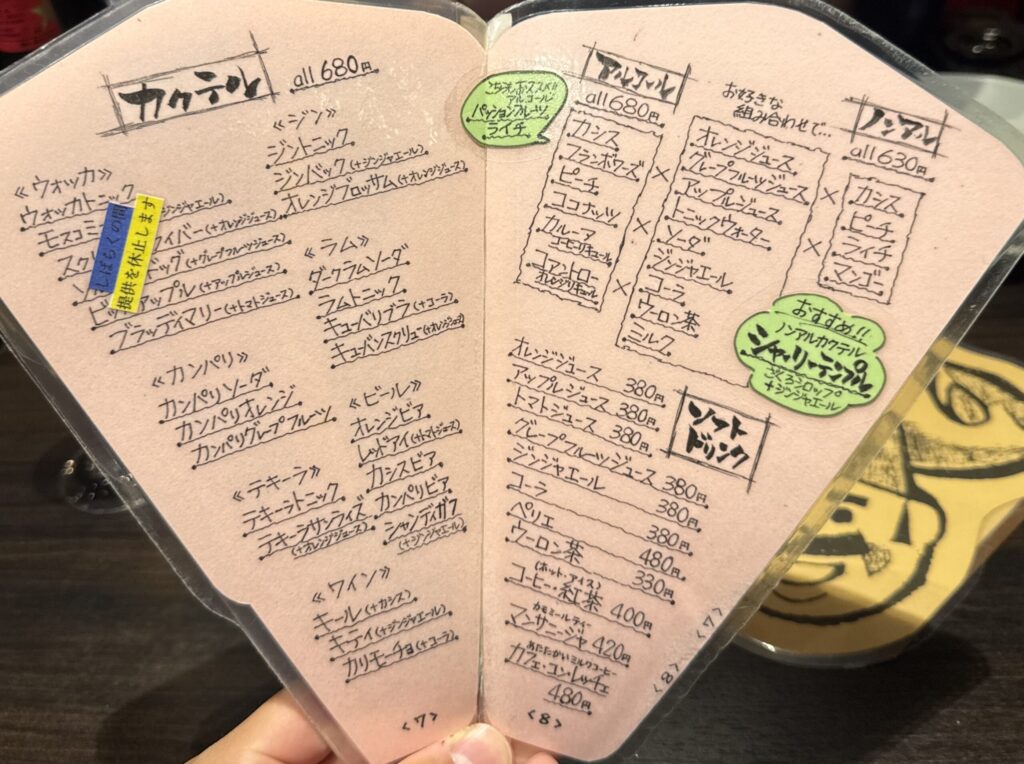 カクテル
all 680円
≪ウォッカ≫
ウォッカトニック
モスコミ
ジンジャエール)
スク
イバー(+オレンジジュース)
ッグ(+グレープフルーツジュース)
ビ
アップル(+アップルジュース)
ブラッディマリー(+トマトジュース)
しばらくの間
提供を休止します
≪ジン≫
ジントニック
ジンバック(+ジンジャエール)
オレンジブロッサム(+オレンジジュース)
≪ラム≫
ダークラムソーダ
ラムトニック
キューバリブラ(+コーラ)
キューバンスクリュー(+オレンジジュース)
≪カンパリ≫
カンパリソーダ
カンパリオレンジ
カンパリグレープフルーツ
≪ビール≫
オレンジビア
レッドアイ(+トマトジュース)
カシスビア
カンパリビア
シャンディガフ
(+ジンジャエール)
≪テキーラ≫
テキーラトニック
テキーラサンライズ
(+オレンジジュース)
≪ワイン≫
キール(+カシス)
キティ(+ジンジャエール)
カリモーチョ(+コーラ)
<7>
こちらオススメ!!
アルコール
パッションフルーツ
ライチ
アルコール
all 680円
カシス
フランボワーズ
ピーチ
ココナッツ
カルーア
コーヒーリキュール
コアントロー
オレンジリキュール
×
×
お好きな
組み合わせで…
オレンジジュース
グレープフルーツジュース
アップルジュース
トニックウォーター
ソーダ
ジンジャエール
コーラ
ウーロン茶
ミルク
×
×
ノンアル
all 630円
カシス
ピーチ
ライチ
マンゴー
おすすめ!!
ノンアルカクテル
シャーリーテンプル
ざくろシロップ
+ジンジャエール
ソフト
ドリンク
オレンジジュース 380円
アップルジュース 380円
トマトジュース 380円
グレープフルーツジュース 380円
ジンジャエール 380円
コーラ 380円
ペリエ 480円
ウーロン茶 330円
(ホット・アイス)
コーヒー・紅茶 400円
カモミールティー
マンサニージャ 420円
あたたかいミルクコーヒー
カフェ・コン・レッチェ
480円
<8>
<8>
<7>